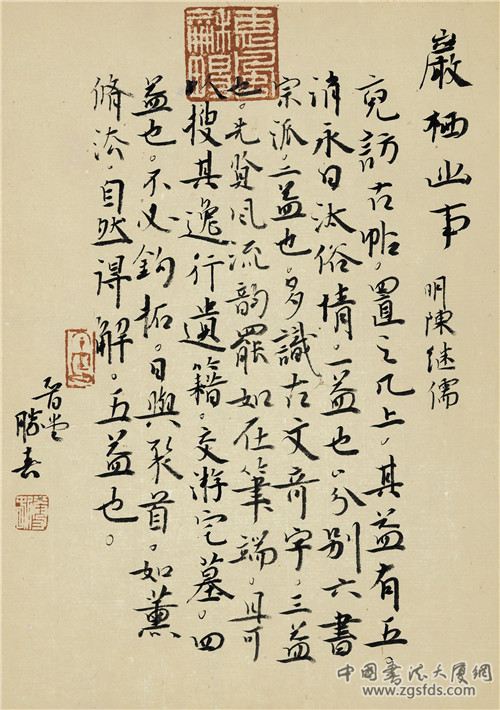 巖栖幽事 明陳继儒
覓訪古帖。置之几上。其益有五。
消永日汰俗情。一益也。分别六書
宗派。二益也。多識古文奇字。三益
也。先贤風流韵態如在筆端。且可
以搜其逸行遺籍。交游宅墓。四
益也。不必鈎拓。日與聚首。如薰
脩法。自然得解。五益也。
中國書法大厦網
www.zgsfds.com